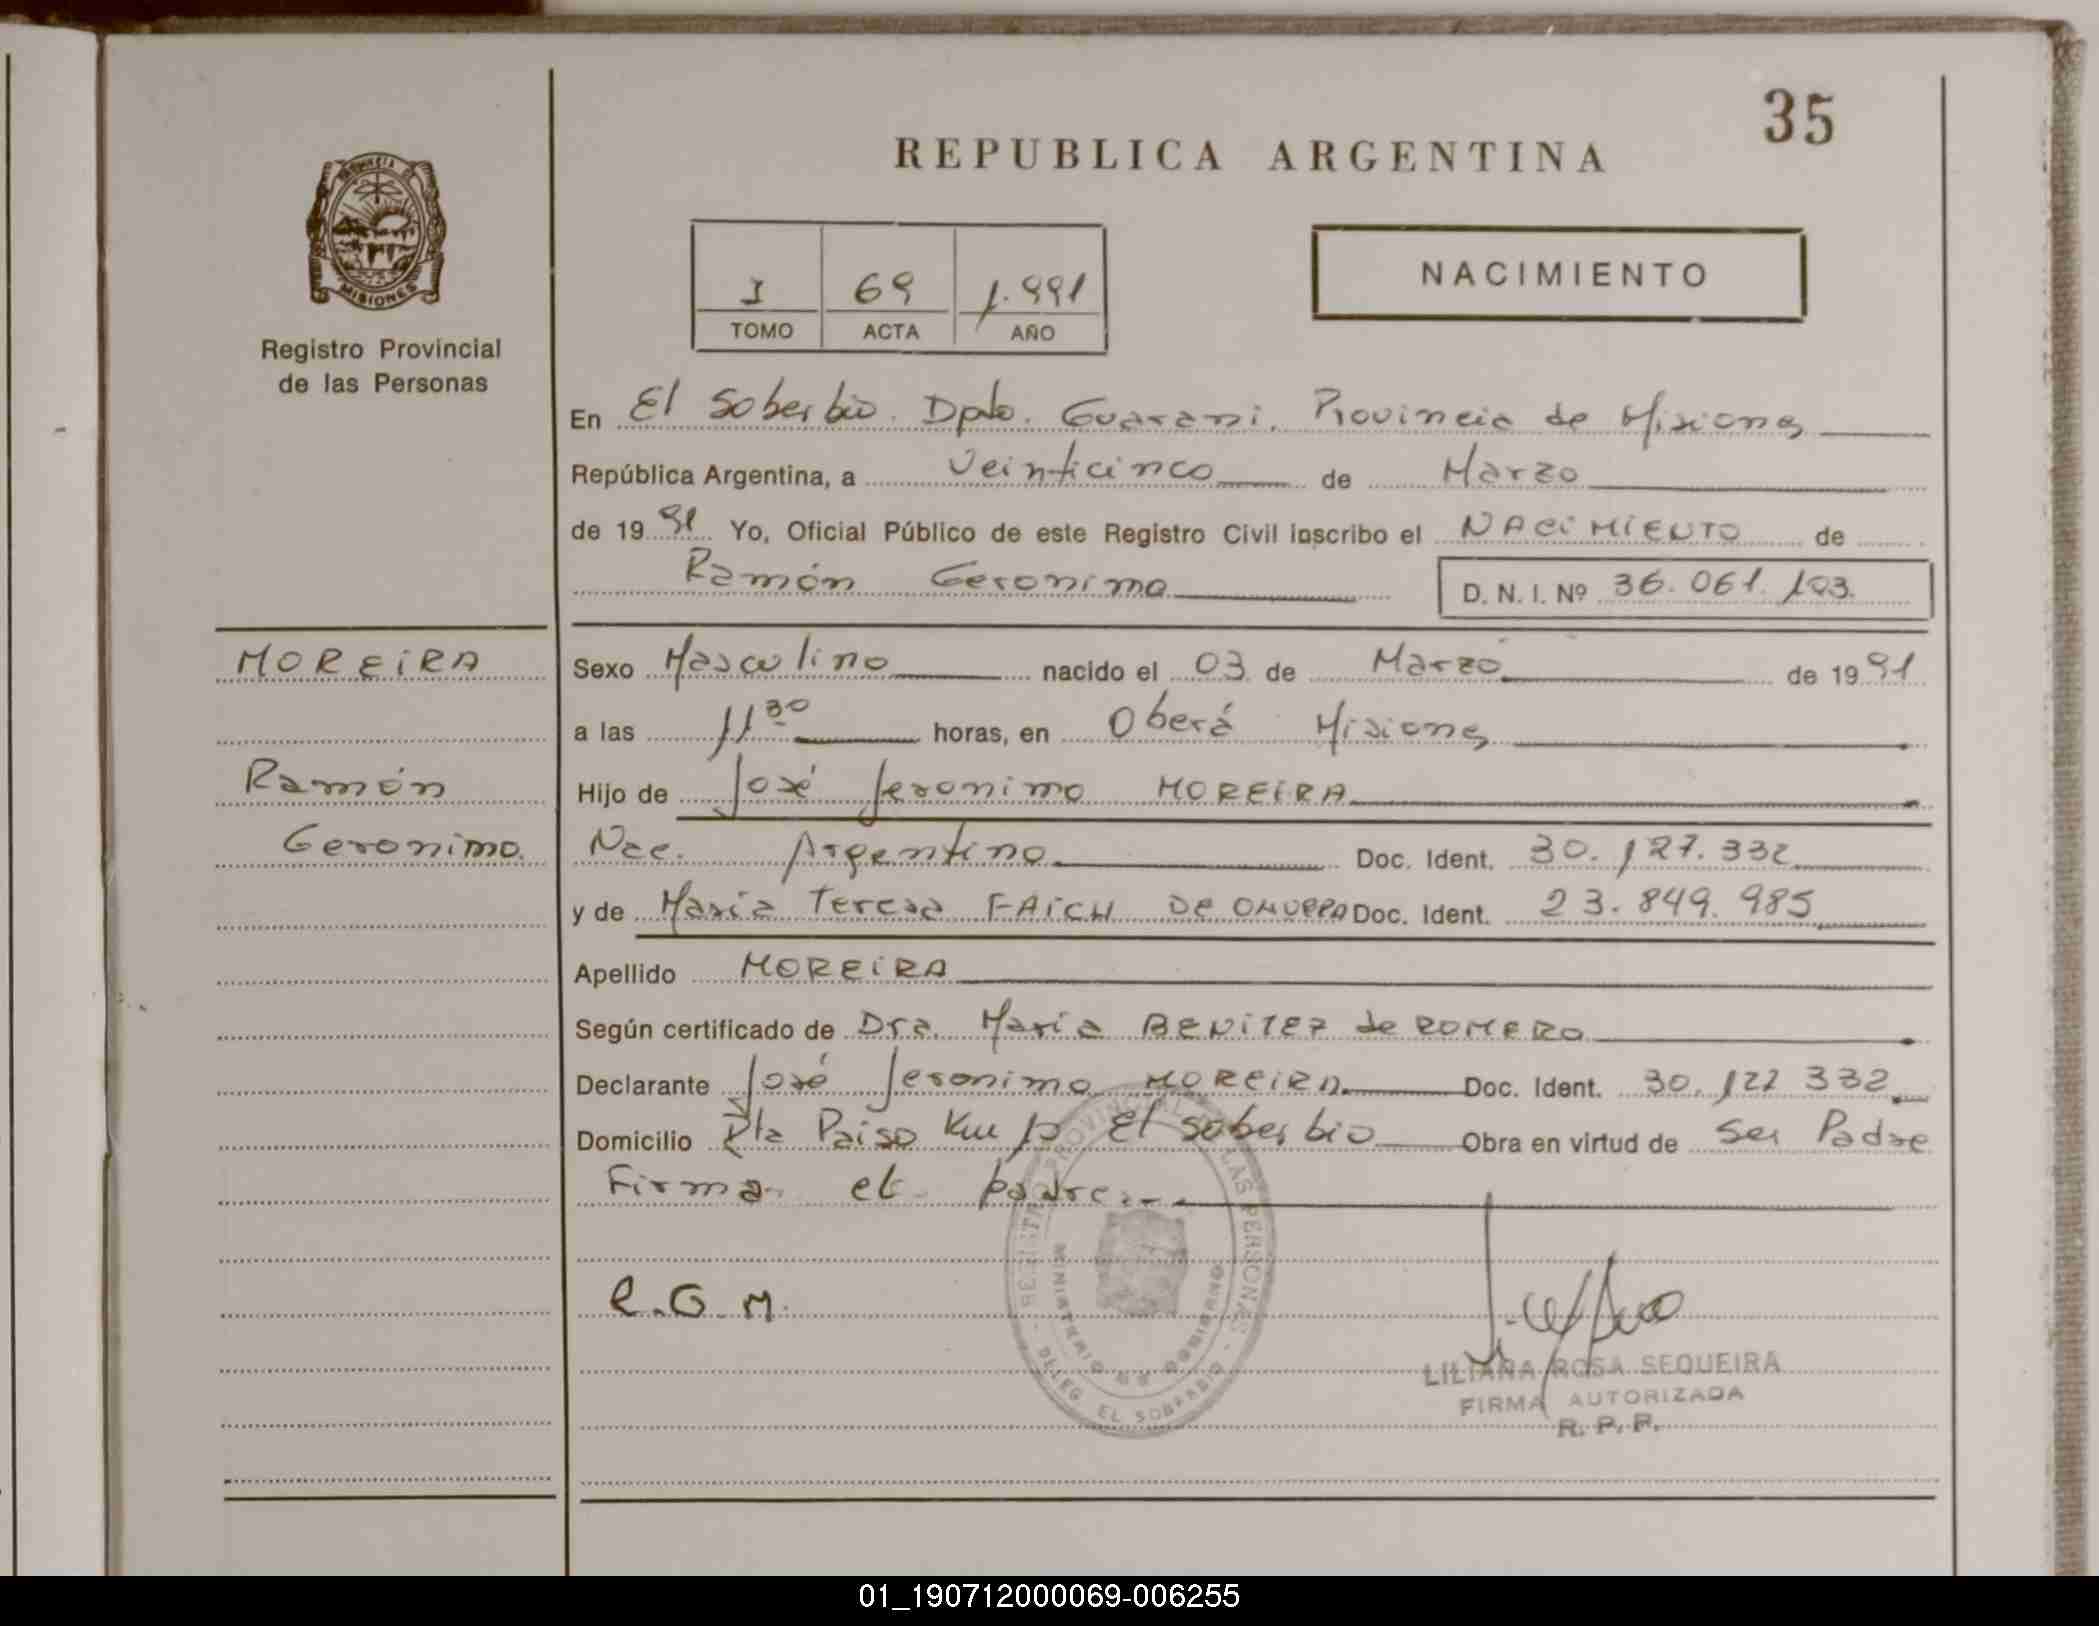 35
REPUBLICA ARGENTINA
PROVINCIA DE
MISIONES
Registro Provincial
de las Personas
I 69 1.991
TOMO ACTA AÑO
NACIMIENTO
En El Soberbio. Dpto. Guarani. Provincia de Misiones
República Argentina, a Veinticinco de Marzo
de 19 91 Yo, Oficial Público de este Registro Civil inscribo el NACIMIENTO de
Ramón Geronimo D. N. I. Nº 36.061.103.
MOREIRA
Ramón
Geronimo.
Sexo Masculino nacido el 03 de Marzo de 19 91
a las 11 30 horas, en Oberá Misiones
Hijo de José Jeronimo MOREIRA
Nac. Argentino Doc. Ident. 30.127.332
y de Maria Teresa FAICH DE Doc. Ident. 23.849.985
Apellido MOREIRA
Según certificado de Dra. Maria BENITEZ de ROMERO
Declarante José Jeronimo MOREIRA Doc. Ident. 30.127 332
Domicilio Paiso Km El Soberbio Obra en virtud de Ser Padre
Firma el padre.
R.G.M.
REGISTRO PROVINCIAL DE LAS PERSONAS
MINISTERIO DE GOBIERNO
DELEG EL SOBERBIO
LILIANA ROSA SEQUEIRA
FIRMA AUTORIZADA
R. P. P.
01_190712000069-006255